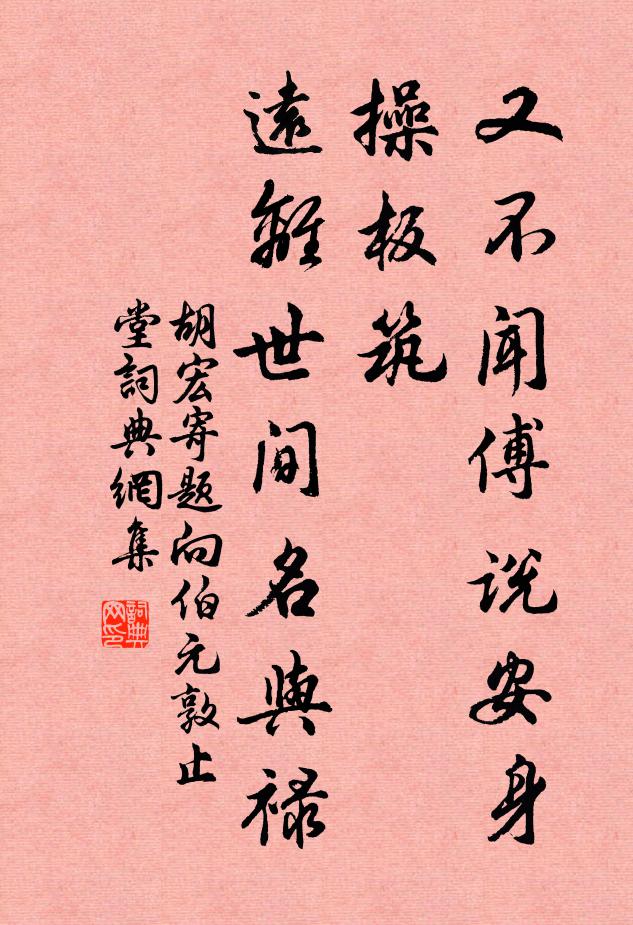 又不聞傅说安身
操板筑
遠離世间名與禄
胡宏寄题向伯元敦止
堂詞典網集
詞典网印